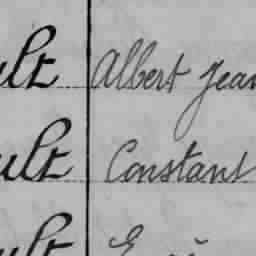 ult Albert Jean
ult Constant
ult